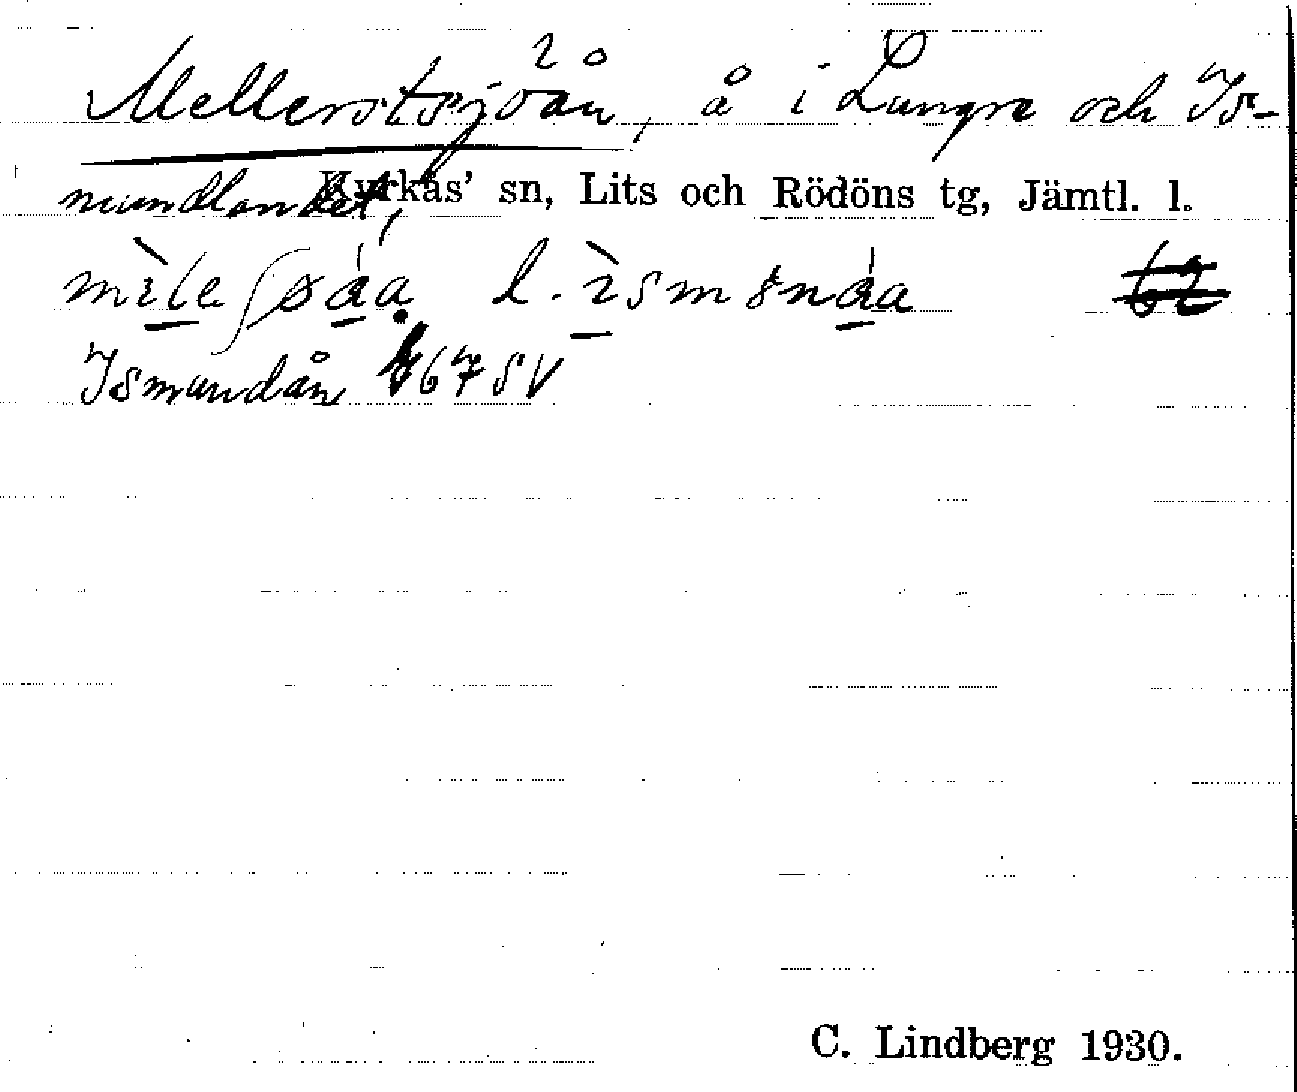 Mellerstsjöån, å i Lungre och Is-
mundlandet,
Kyrkås' sn, Lits och Rödöns tg, Jämtl. l.
l.
Ismundån 67 SV
C. Lindberg 1930.